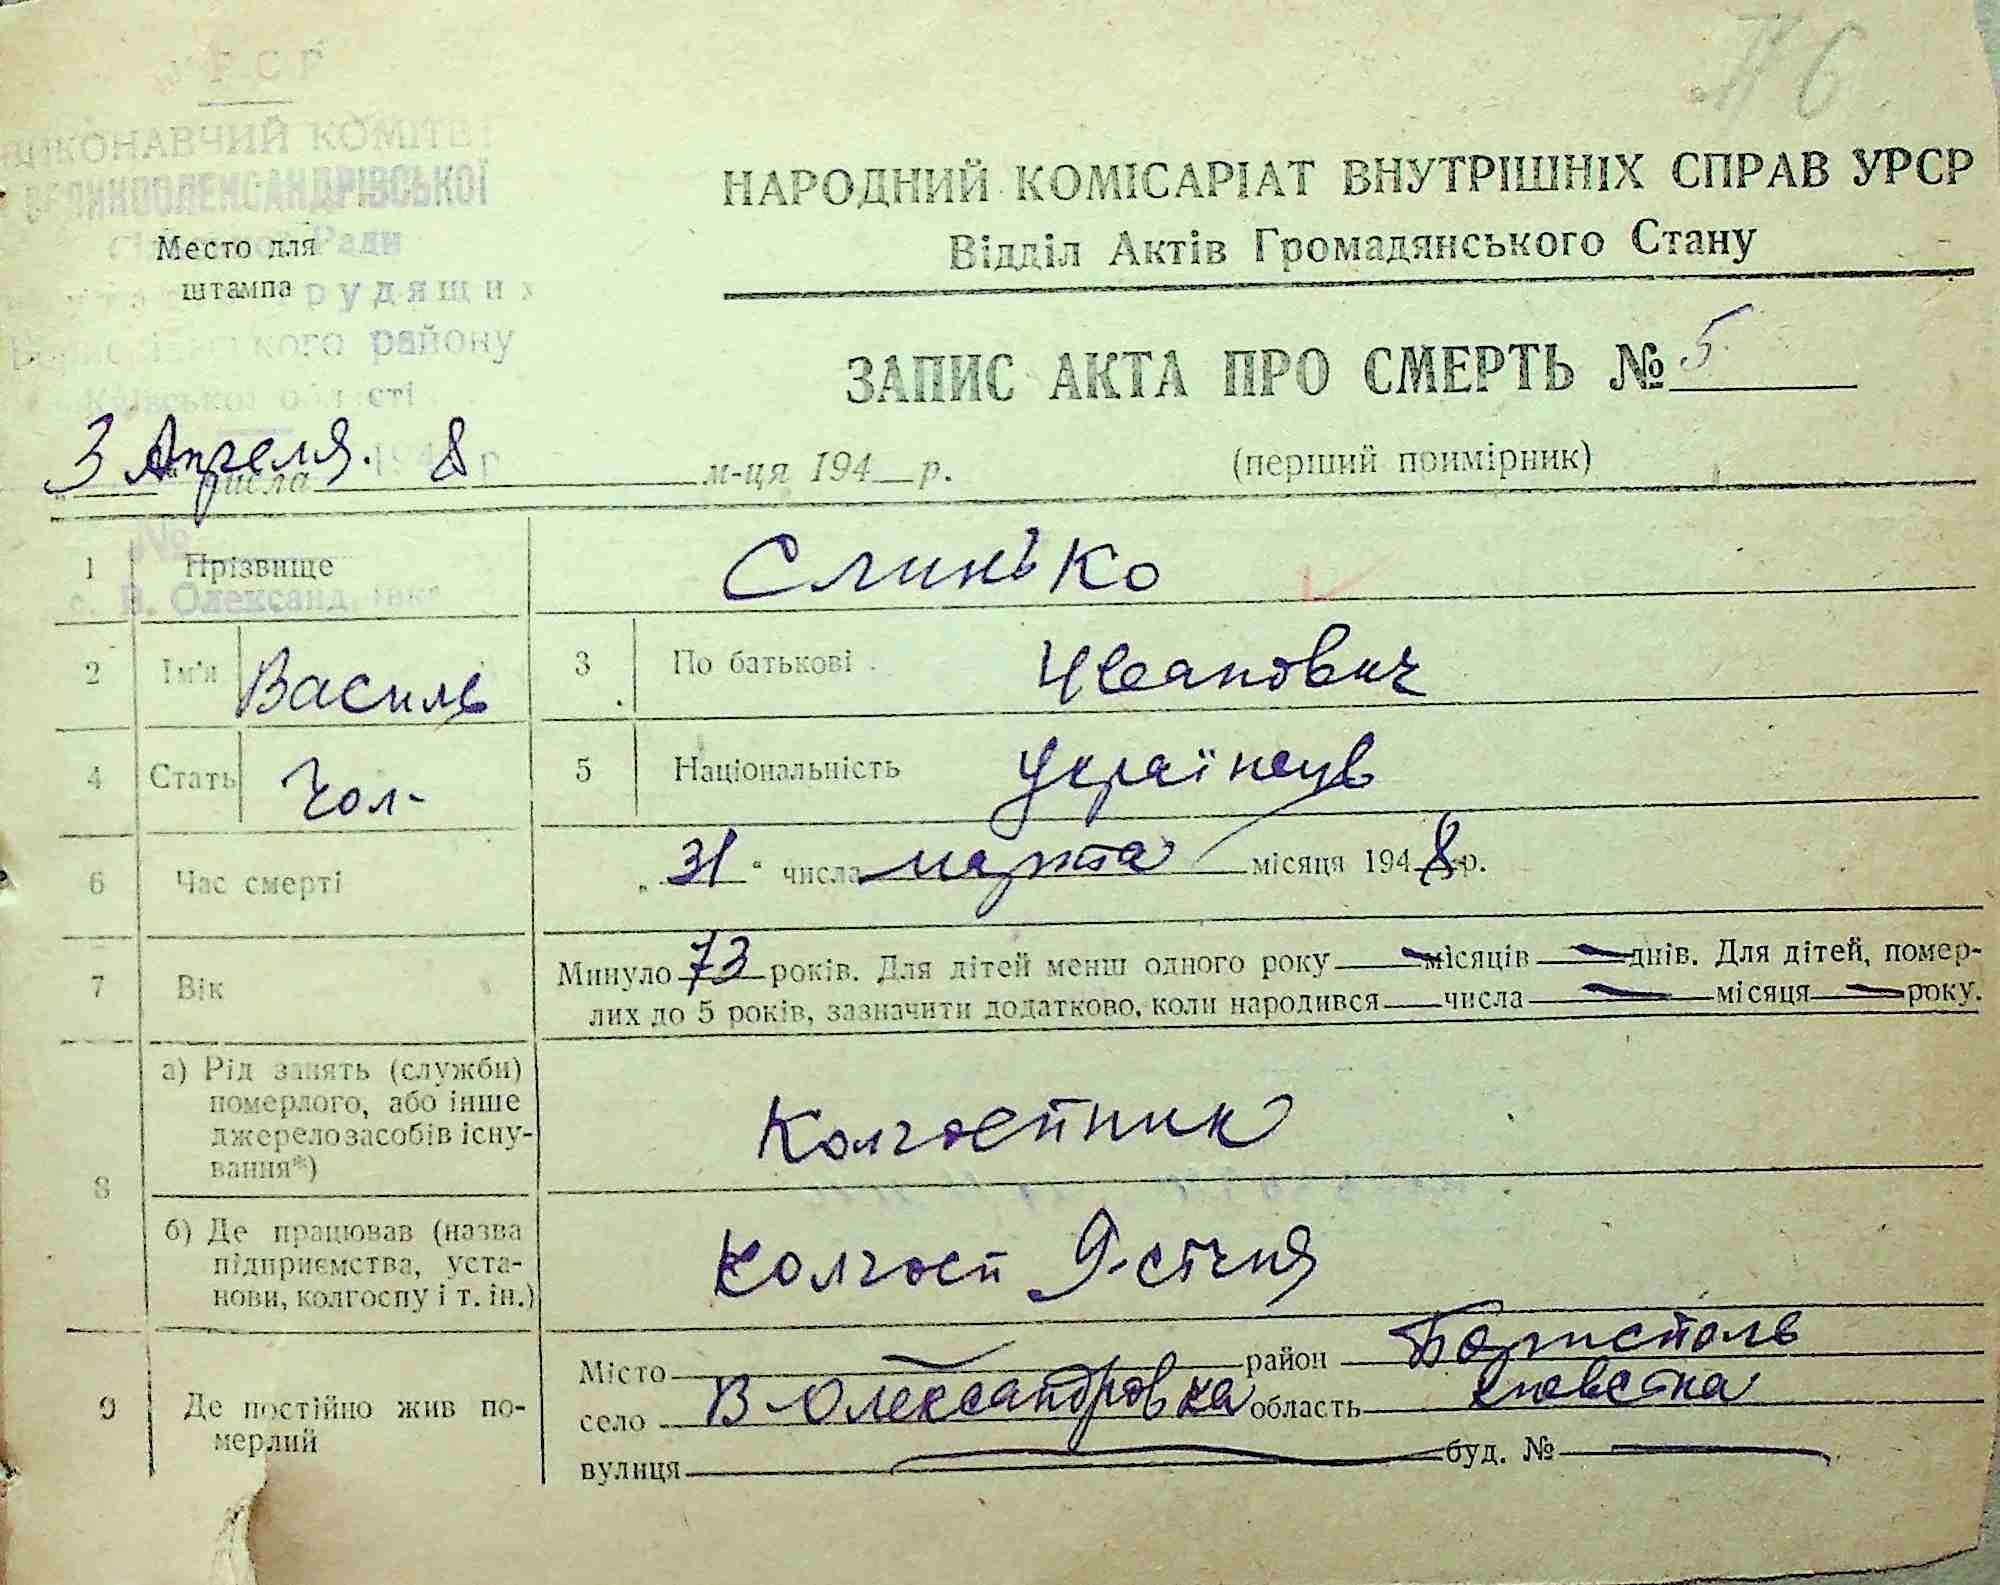 УРСР
ВИКОНАВЧИЙ КОМІТЕТ
ВЕЛИКООЛЕКСАНДРІВСЬКОЇ
Ради
Место для
штампа
трудящих
району
Київської області
№
с. В. Олександрівка
76
НАРОДНИЙ КОМІСАРІАТ ВНУТРІШНІХ СПРАВ УРСР
Відділ Актів Громадянського Стану
ЗАПИС АКТА ПРО СМЕРТЬ № 5
(перший примірник)
3 Апреля. 1948 р
числа м-ця 194 р.
1 Прізвище Слинько
2 Ім'я Василь 3 По батькові Иванович
4 Стать Чол- 5 Національність Українець
6 Час смерті „31“ числа марта місяця 1948 р.
7 Вік Минуло 73 років. Для дітей менш одного року — місяців — днів. Для дітей, помер-
лих до 5 років, зазначити додатково, коли народився — числа — місяця — року.
8 а) Рід занять (служби)
померлого, або інше
джерело засобів існу-
вання*)
Колгоспник
б) Де працював (назва
підприємства, уста-
нови, колгоспу і т. ін.)
Колгосп 9-січня
9 Де постійно жив по-
мерлий
Місто — район Борисполь
село В Олександровка область Киевська
вулиця — буд. № —